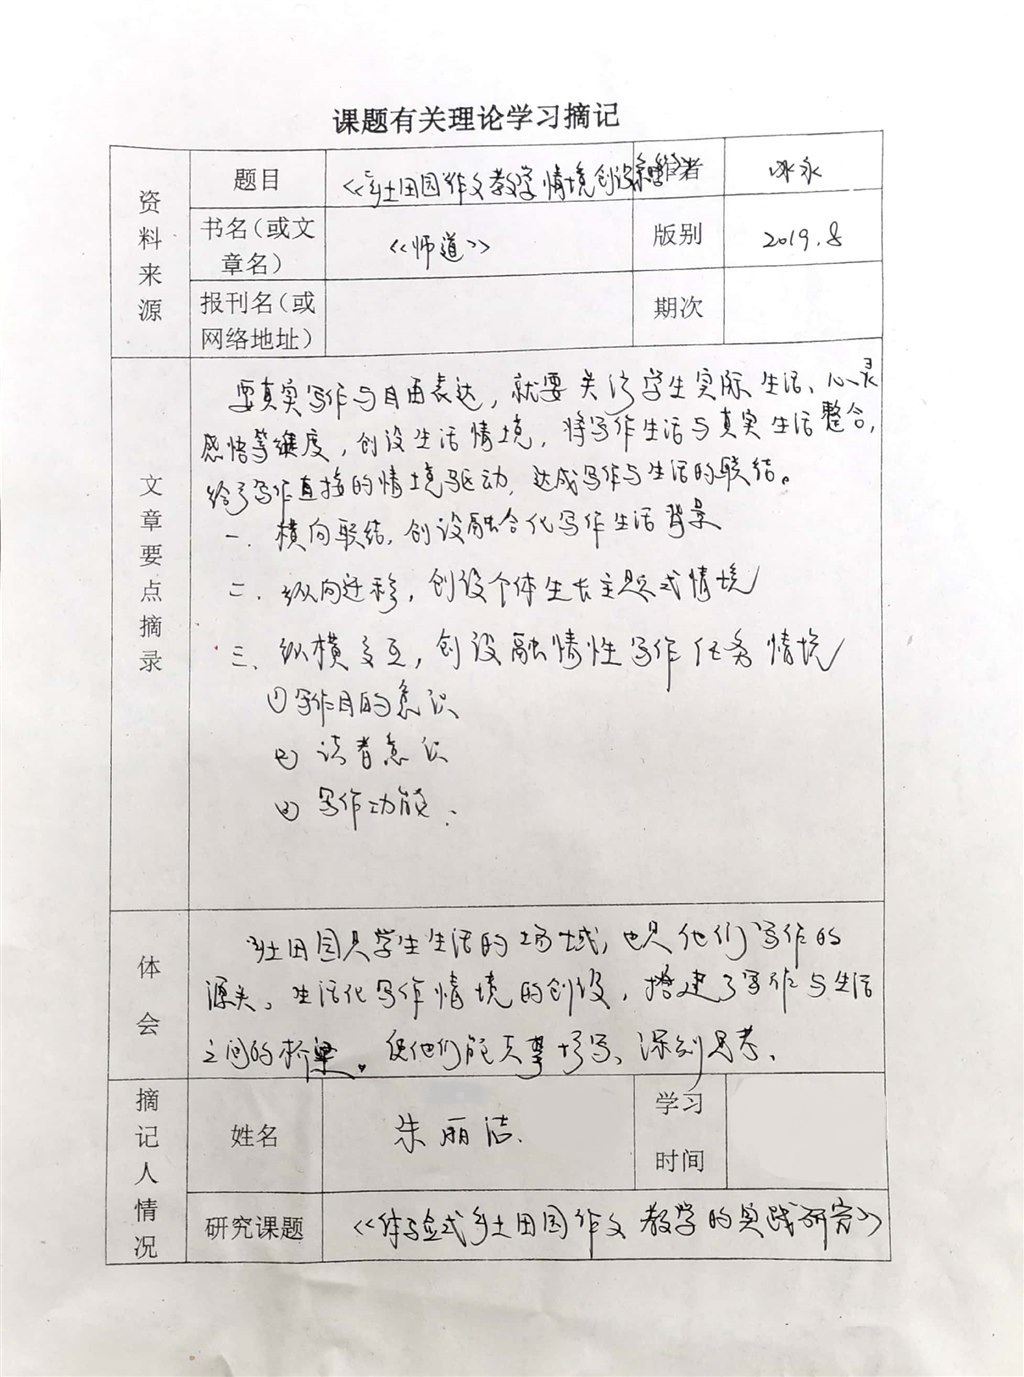 课题有关理论学习摘记
资料来源
题目
《乡土田园作文教学情境创设
作者
冰永
书名(或文章名)
《师道》
版别
2019.8
报刊名(或网络地址)
期次
文章要点摘录
要真实写作与自由表达，就要关注学生实际生活、心灵
感悟等维度，创设生活情境，将写作生活与真实生活整合，
给予写作直接的情境驱动，达成写作与生活的联结。
一．横向联结，创设融合化写作生活背景
二．纵向迁移，创设个体生长主题式情境
三、纵横交互，创设融情性写作任务情境
①写作目的意识
② 读者意识
③ 写作功能．
体会
乡土田园是学生生活的场域，也是他们写作的
源头。生活化写作情境的创设，搭建了写作与生活
之间的桥梁。使他们能、深刻思考、
摘记人情况
姓名
朱丽洁.
学习时间
研究课题
《体验式乡土田园作文教学的实践研究》